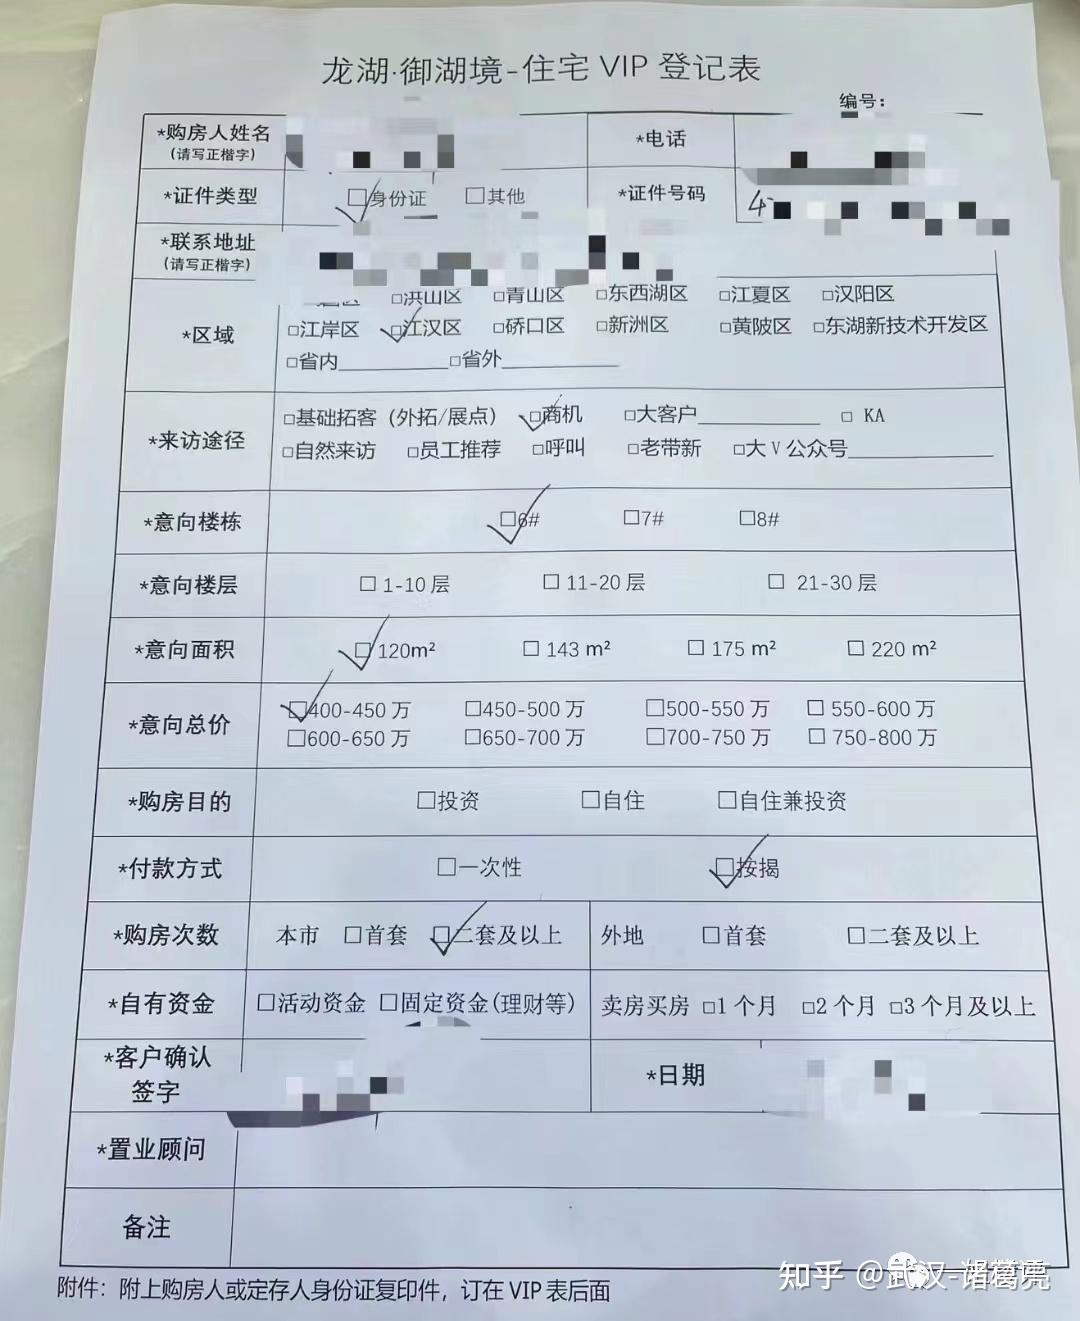 龙湖·御湖境-住宅 VIP 登记表
编号：
*购房人姓名 *电话
(请写正楷字)
*证件类型 □身份证 □其他 *证件号码 4
*联系地址
(请写正楷字)
□洪山区 □青山区 □东西湖区 □江夏区 □汉阳区
*区域 □江岸区 □江汉区 □硚口区 □新洲区 □黄陂区 □东湖新技术开发区
□省内 □省外
□基础拓客（外拓/展点） □商机 □大客户 □ KA
*来访途径
□自然来访 □员工推荐 □呼叫 □老带新 □大 V 公众号
*意向楼栋 □6# □7# □8#
*意向楼层 □ 1-10 层 □ 11-20 层 □ 21-30 层
*意向面积 □ 120m² □ 143 m² □ 175 m² □ 220 m²
□400-450 万 □450-500 万 □500-550 万 □ 550-600 万
*意向总价
□600-650 万 □650-700 万 □700-750 万 □ 750-800 万
*购房目的 □投资 □自住 □自住兼投资
*付款方式 □一次性 □按揭
*购房次数 本市 □首套 □二套及以上 外地 □首套 □二套及以上
*自有资金 □活动资金 □固定资金(理财等) 卖房买房 □1 个月 □2 个月 □3 个月及以上
*客户确认
签字 *日期
*置业顾问
备注
附件：附上购房人或定存人身份证复印件，订在 VIP 表后面
知乎 @武汉-诸葛亮